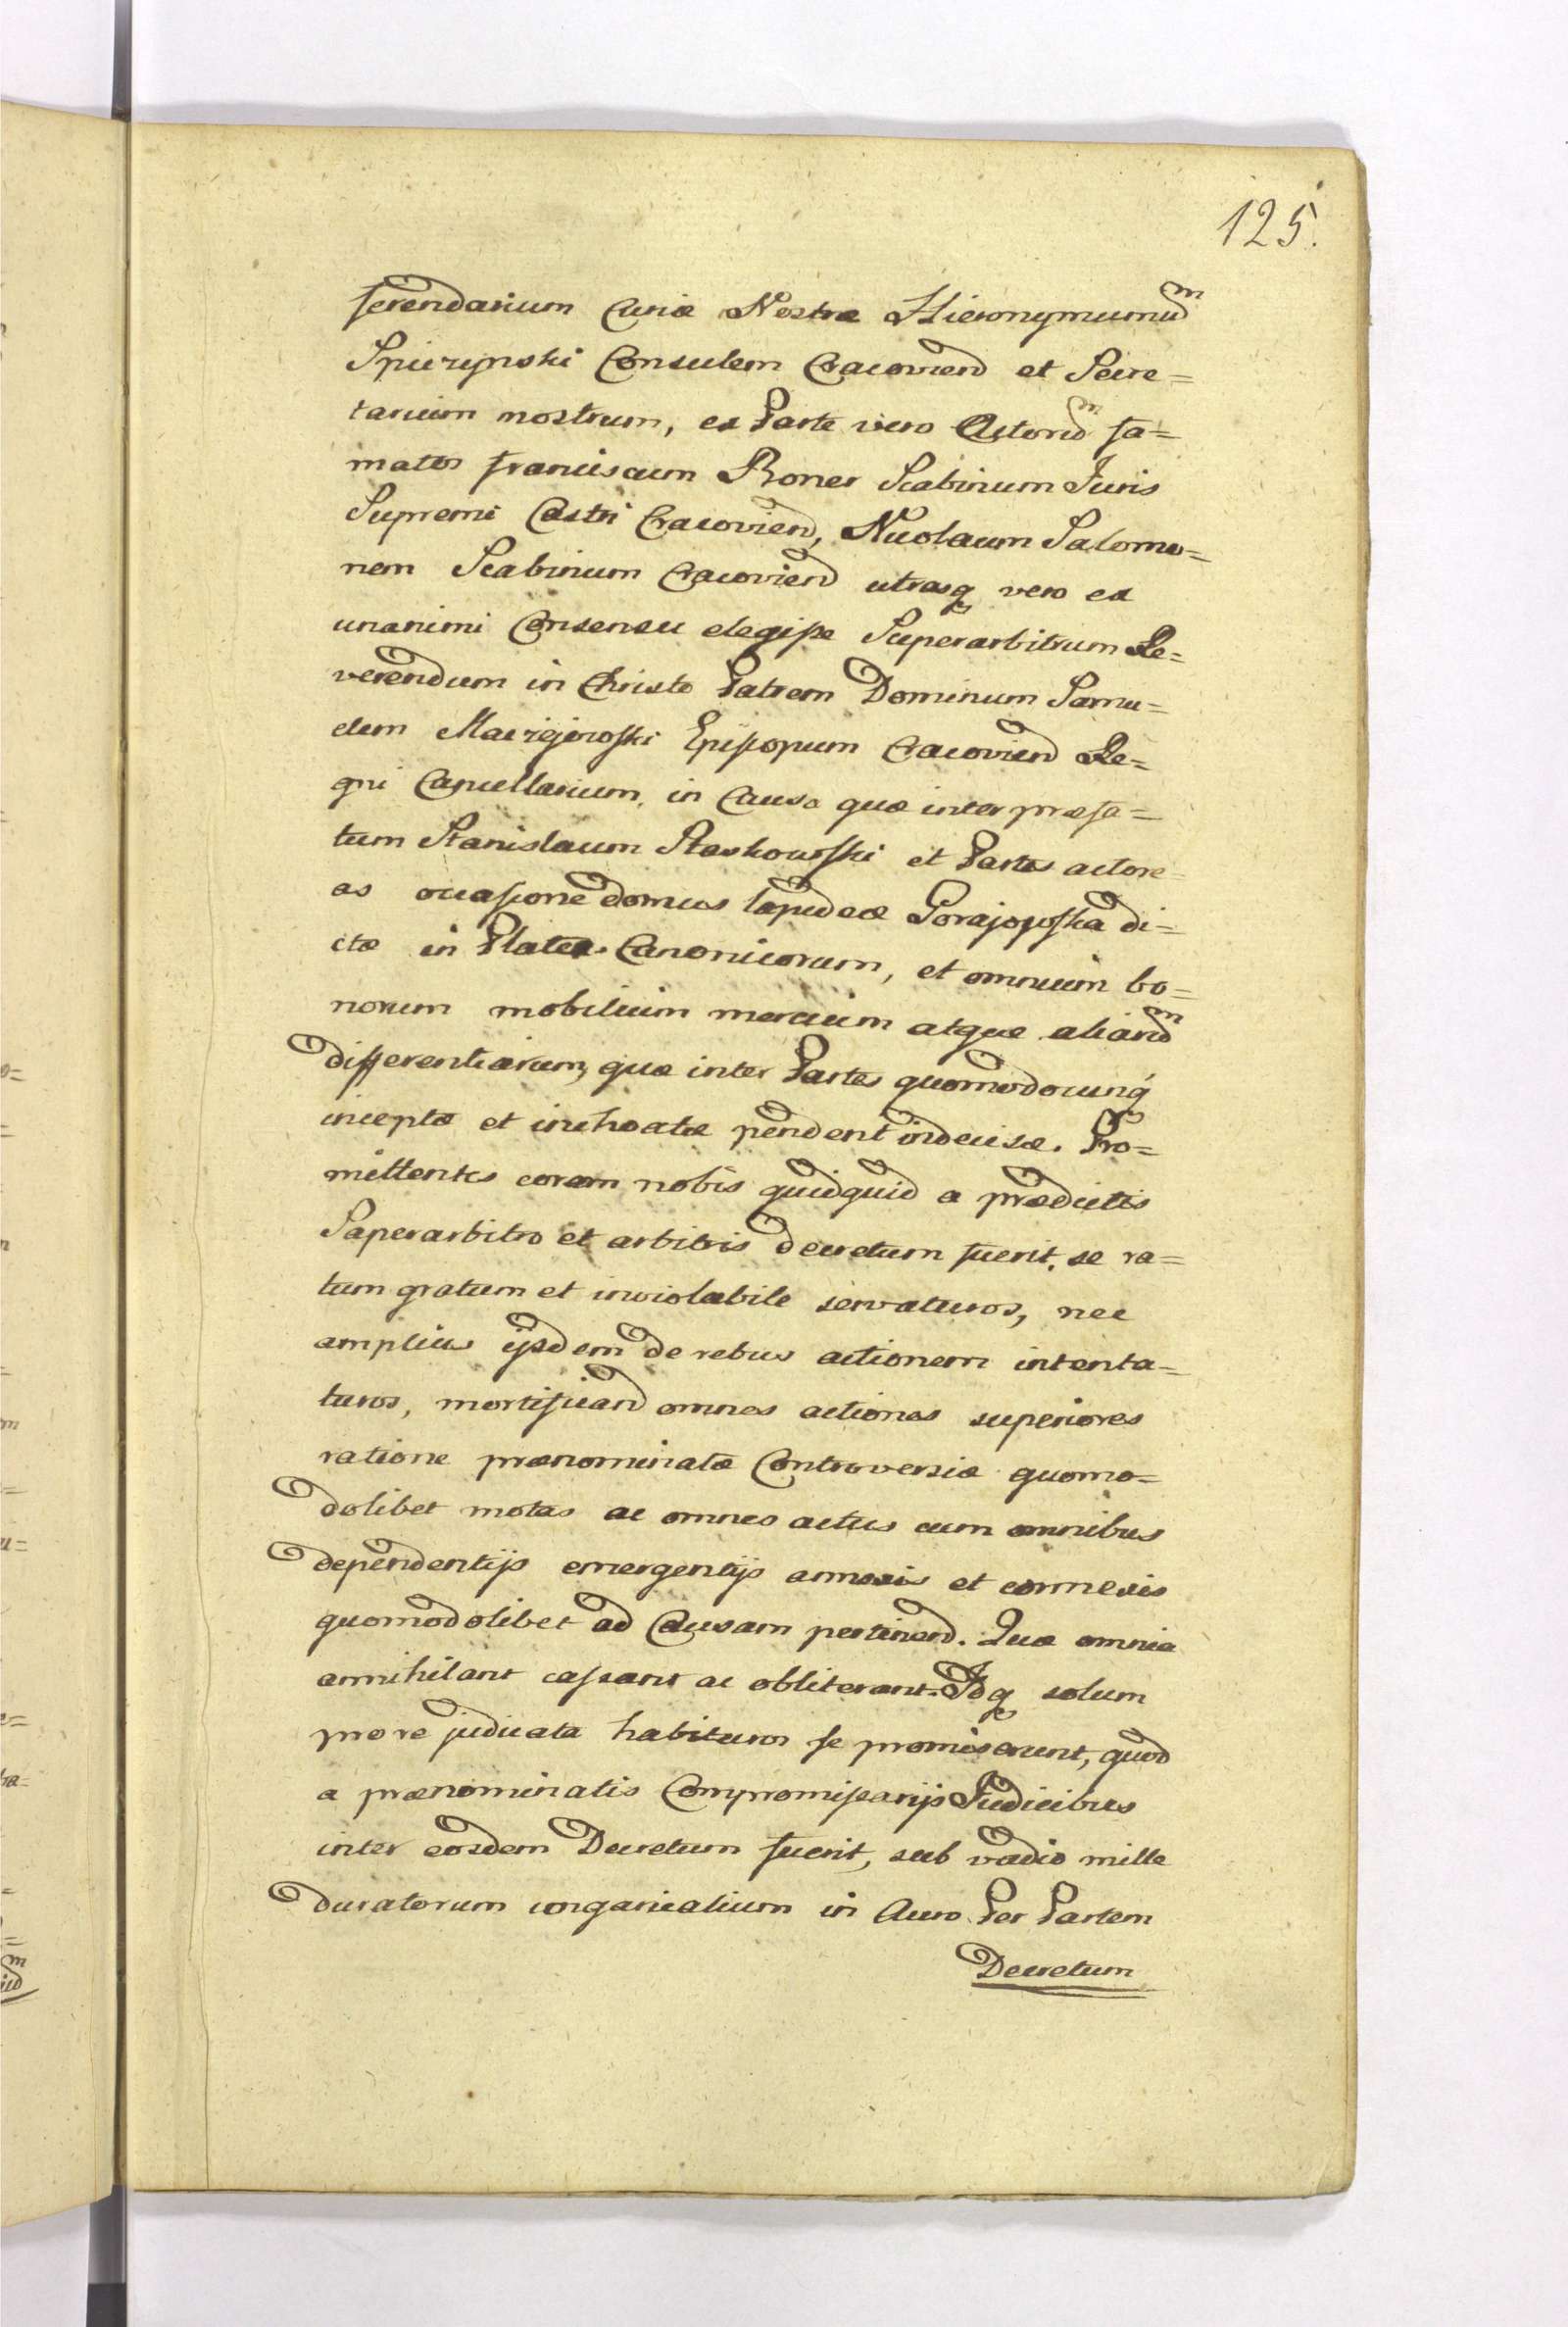 125.
ferendarium Curiæ Nostræ Hieronymumd̃
Spiczynski Consulem Cracoviend et Secre=
tarium nostrum, ex Parte vero Actord̃ fa=
matos Franciscum Boner Scabinum Juris
Supremi Castri Cracoviend, Nicolaum Salomo=
nem Scabinum Cracoviend utrasq vero ex
unanimi Consensu elegiſse Superarbitrum Re=
verendum in Christo Patrem Dominum Samu=
elem Maciejowſki Epiſcopum Cracoviend Re=
gni Cancellarium, in Causa quæ inter præfa=
tum Stanislaum Staskowſki et Partes actore=
as occaſione domus lapideæ Gorajowſka di=
ctæ in Platea Canonicorum, et omnium bo=
norum mobilium mercium atque aliard̃
differentiarum, quæ inter Partes quomodocunq́
inceptæ et inchoatæ pendent indecisæ. Pro=
mittentes coram nobis quidquid a prædictis
Superarbitro et arbitris decretum fuerit, se ra=
tum gratum et inviolabile servaturos, nec
amplius ijsdem de rebus actionem intenta=
turos, mortificand omnes actiones superiores
ratione prænominatæ Controversiæ quomo=
dolibet motas ac omnes actus cum omnibus
dependentijs emergentijs annexis et connexis
quomodolibet ad Causam pertinend. Quæ omnia
annihilant caſsant ac obliterant. Idq solum
pro re judicata habituros ſe promiserunt, quod
a prænominatis Compromiſsarijs Judicibus
inter eosdem Decretum fuerit, sub vadio mille
ducatorum ungaricalium in Auro Per Partem
Decretum